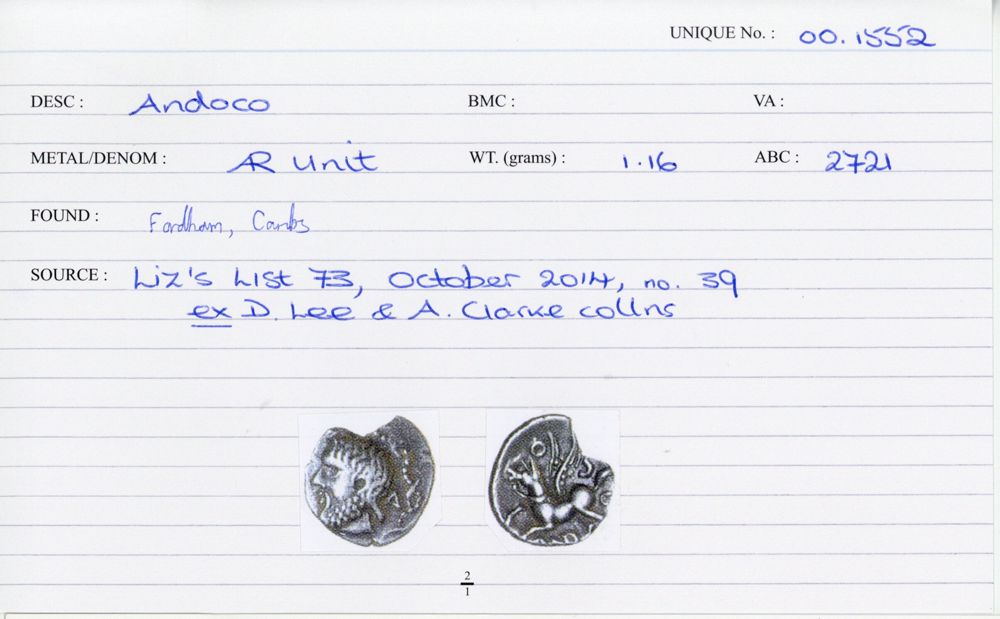 UNIQUE No. : 00.1552
DESC : Andoco BMC : VA :
METAL/DENOM : AR Unit WT. (grams) : 1.16 ABC : 2721
FOUND : Fordham, Cambs
SOURCE : Liz's List 73, October 2014, no. 39
ex D. Lee & A. Clarke collns
2
1